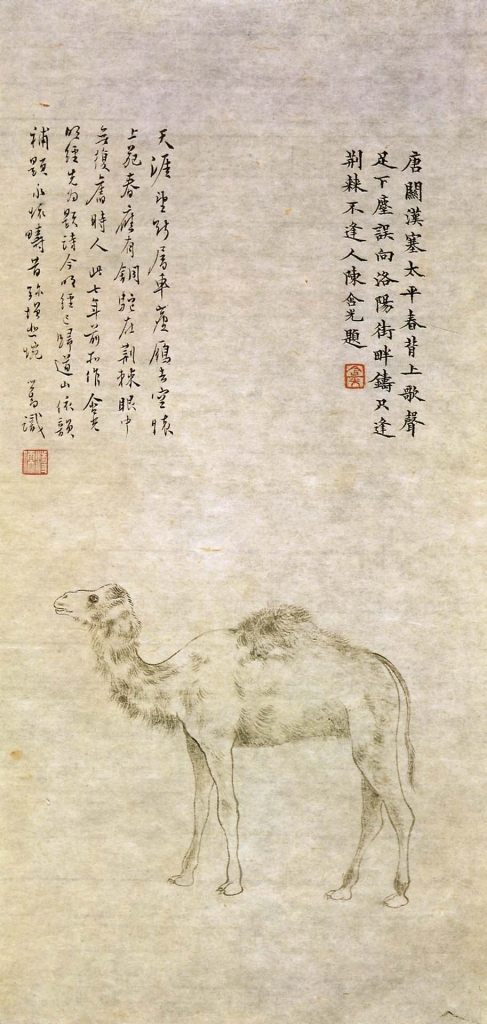 唐關漢塞太平春背上歌聲
足下塵誤向洛陽街畔鑄只逢
荆棘不逢人陳含光題
天涯望斷屬車塵雁去空
上苑春應有銅駝在荆棘眼中
無復舊時人此七年前所作含光
明經先為題詩今明經已歸道山依韻
補題永懷疇昔弥增悲惋識